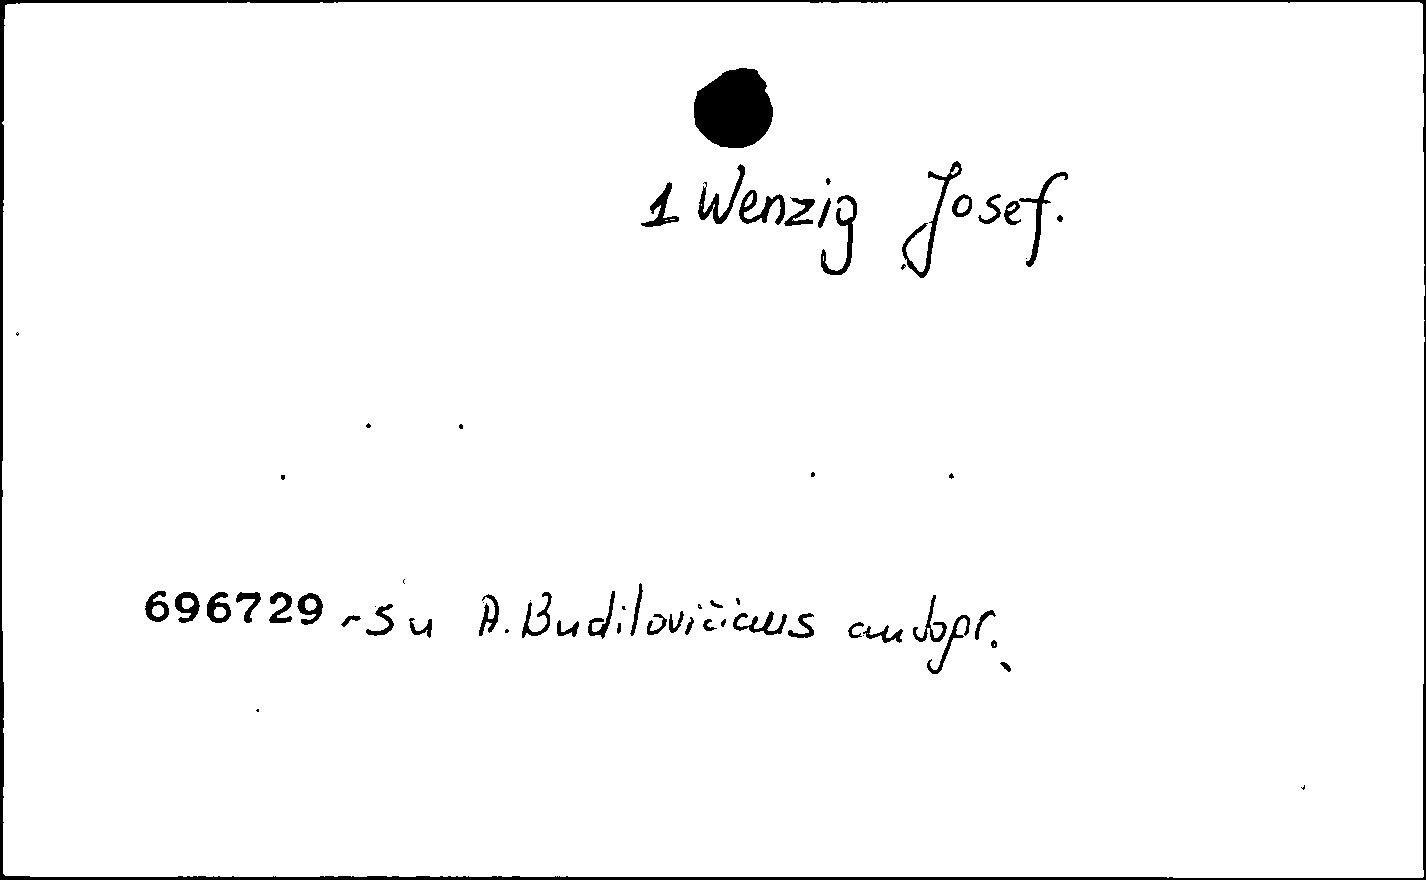 1 Wenzig Josef.
696729 - su A. Budilovičiaus autogr.